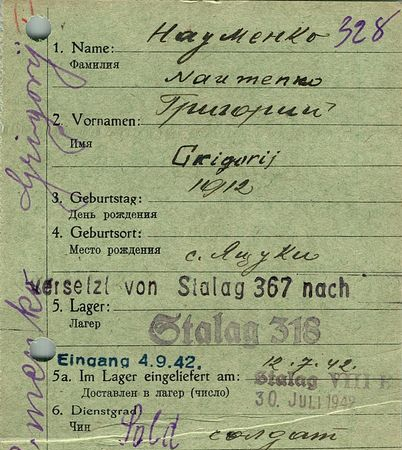 Науменко 328
1. Name:
Фамилия
Naumenko
2. Vornamen: Григорий
Имя
Grigorij
1912
3. Geburtstag:
День рождения
4. Geburtsort:
Место рождения с. Яцуки
versetzt von Stalag 367 nach
5. Lager:
Лагер Stalag 318
Eingang 4.9.42. 12.7.42.
5a. Im Lager eingeliefert am: Stalag VIII E
Доставлен в лагер (число) 30. JULI 1942
6. Dienstgrad:
Чин Sold солдат
Grigorij